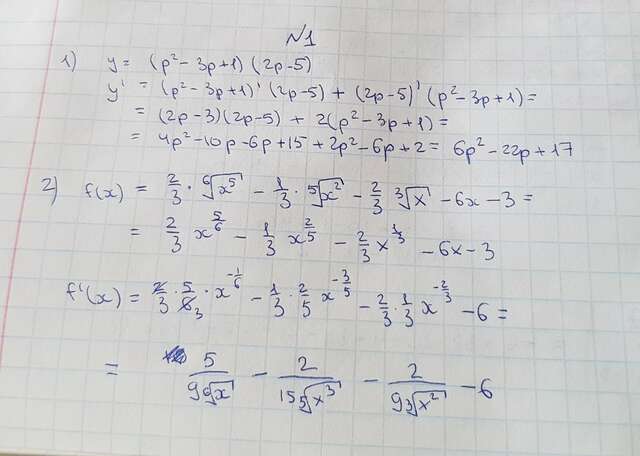 №1
1) y = (p² - 3p+1) (2p-5)
y' = (p² - 3p+1)' (2p-5) + (2p-5)' (p² - 3p+1) =
= (2p-3)(2p-5) + 2(p² - 3p+1) =
= 4p² - 10p - 6p + 15 + 2p² - 6p + 2 = 6p² - 22p + 17
2) f(x) = 2/3 · ⁶√x⁵ - 1/3 · ⁵√x² - 2/3 ³√x - 6x - 3 =
= 2/3 x^(5/6) - 1/3 x^(2/5) - 2/3 x^(1/3) - 6x - 3
f'(x) = 2/3 · 5/6₃ · x^(-1/6) - 1/3 · 2/5 x^(-3/5) - 2/3 · 1/3 x^(-2/3) - 6 =
= 5/(9 ⁶√x) - 2/(15 ⁵√x³) - 2/(9 ³√x²) - 6